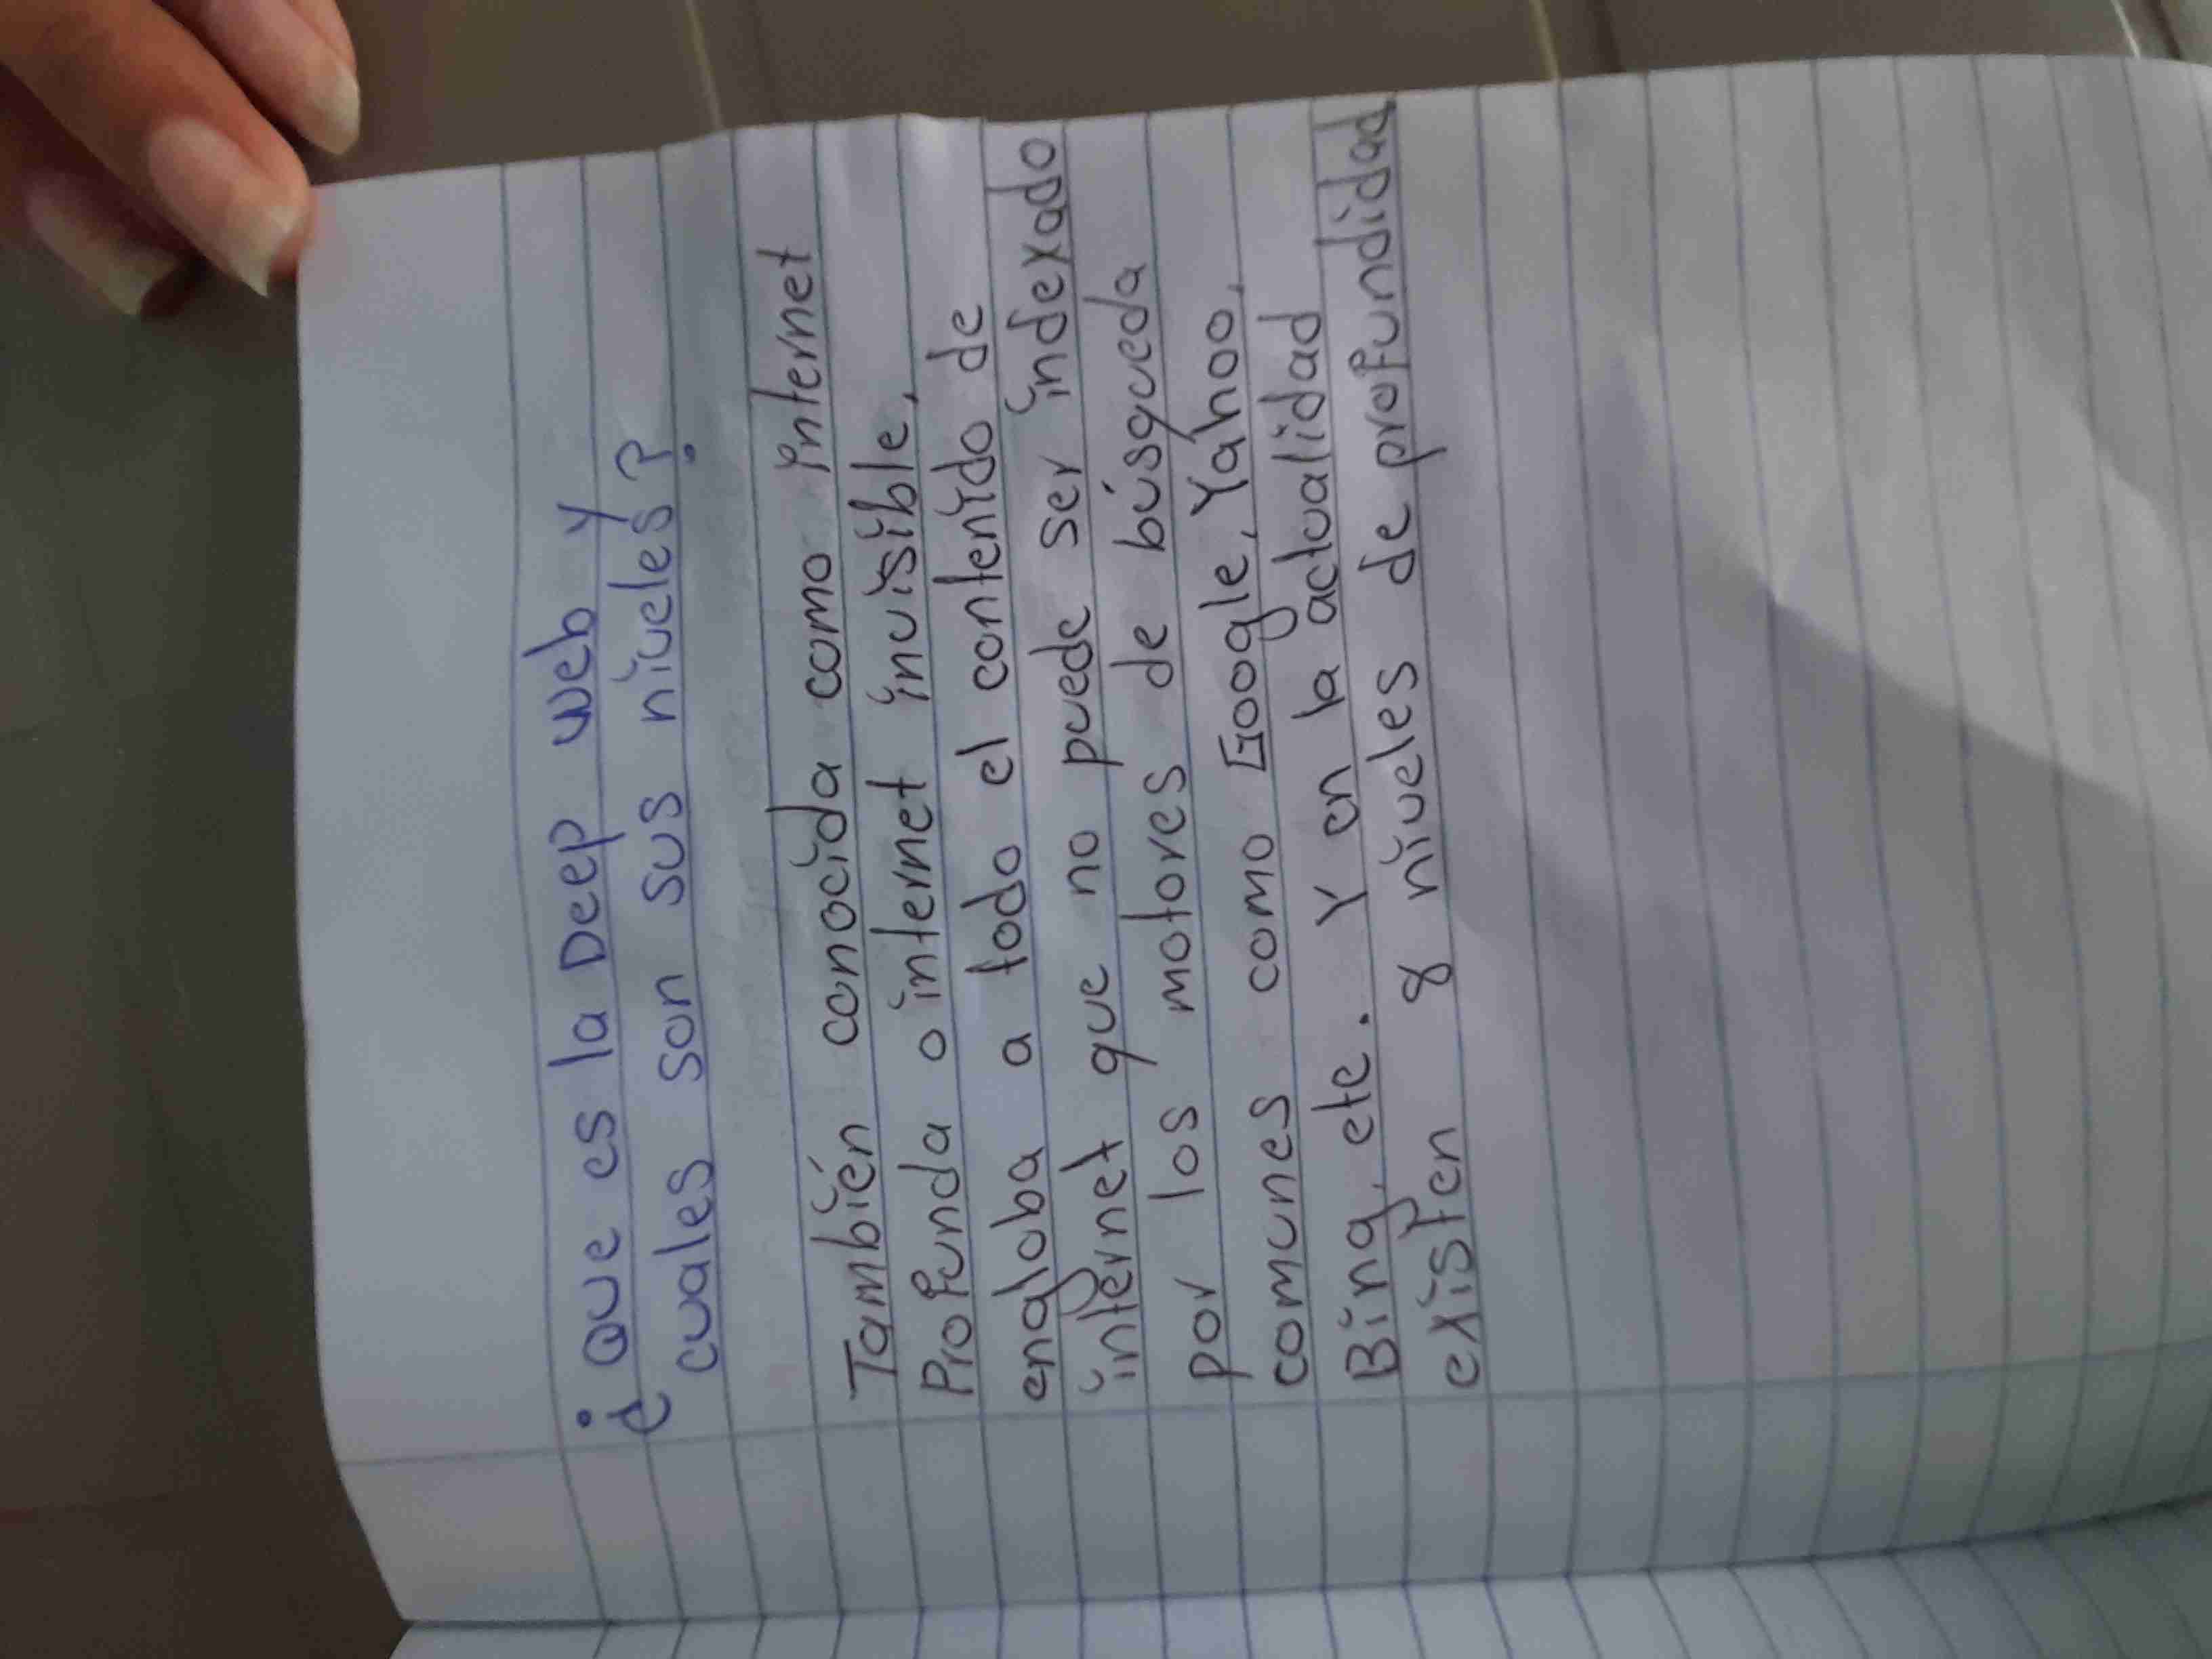 ¿Que es la Deep web y
cuales son sus niveles?
También conocida como internet
Profunda o internet invisible,
engloba a todo el contenido de
internet que no puede ser indexado
por los motores de búsqueda
comunes como Google, Yahoo,
Bing, etc. Y en la actualidad
existen 8 niveles de profundidad